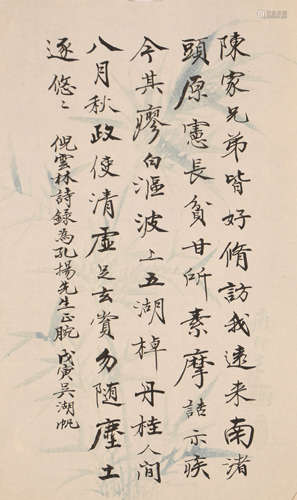 陳家兄弟皆好脩訪我遠来南渚
頭原憲長貧甘所素摩詰示疾
今其廖白漚波上五湖棹丹桂人間
八月秋政使清虚足玄賞勿随塵土
逐悠〻
倪雲林詩錄為孔揚先生正腕 戊寅吳湖帆